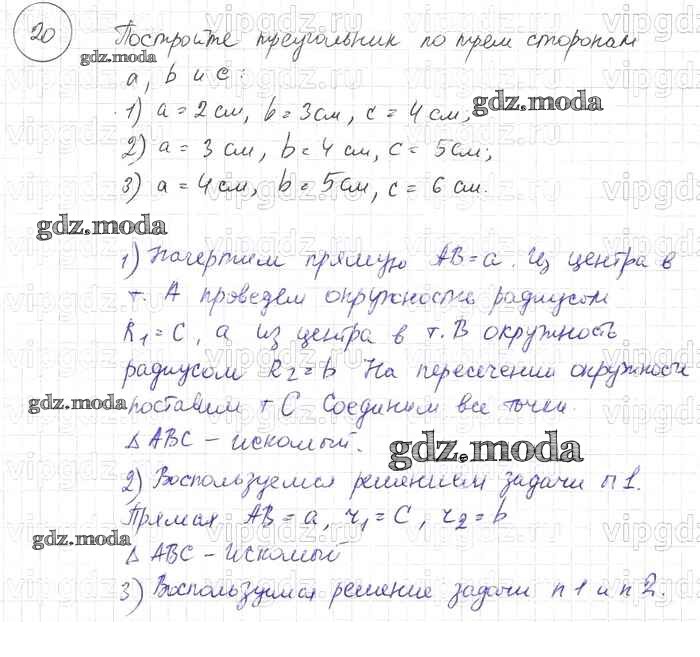 20 Постройте треугольник по трем сторонам
a, b и c:
1) a = 2 см, b = 3 см, c = 4 см;
2) a = 3 см, b = 4 см, c = 5 см;
3) a = 4 см, b = 5 см, c = 6 см.
1) Начертим прямую AB = a. Из центра в
т. A проведем окружность радиусом
R₁ = C, а из центра в т. B окружность
радиусом R₂ = b На пересечении окружности
поставим т C Соединим все точки.
Δ ABC – искомый.
2) Воспользуемся решением задачи п 1.
Прямая AB = a, r₁ = C, r₂ = b
Δ ABC – искомый
3) Воспользуемся решение задачи п 1 и п 2.
gdz.moda
gdz.moda
gdz.moda
gdz.moda
gdz.moda
gdz.moda
vipgdz.ru